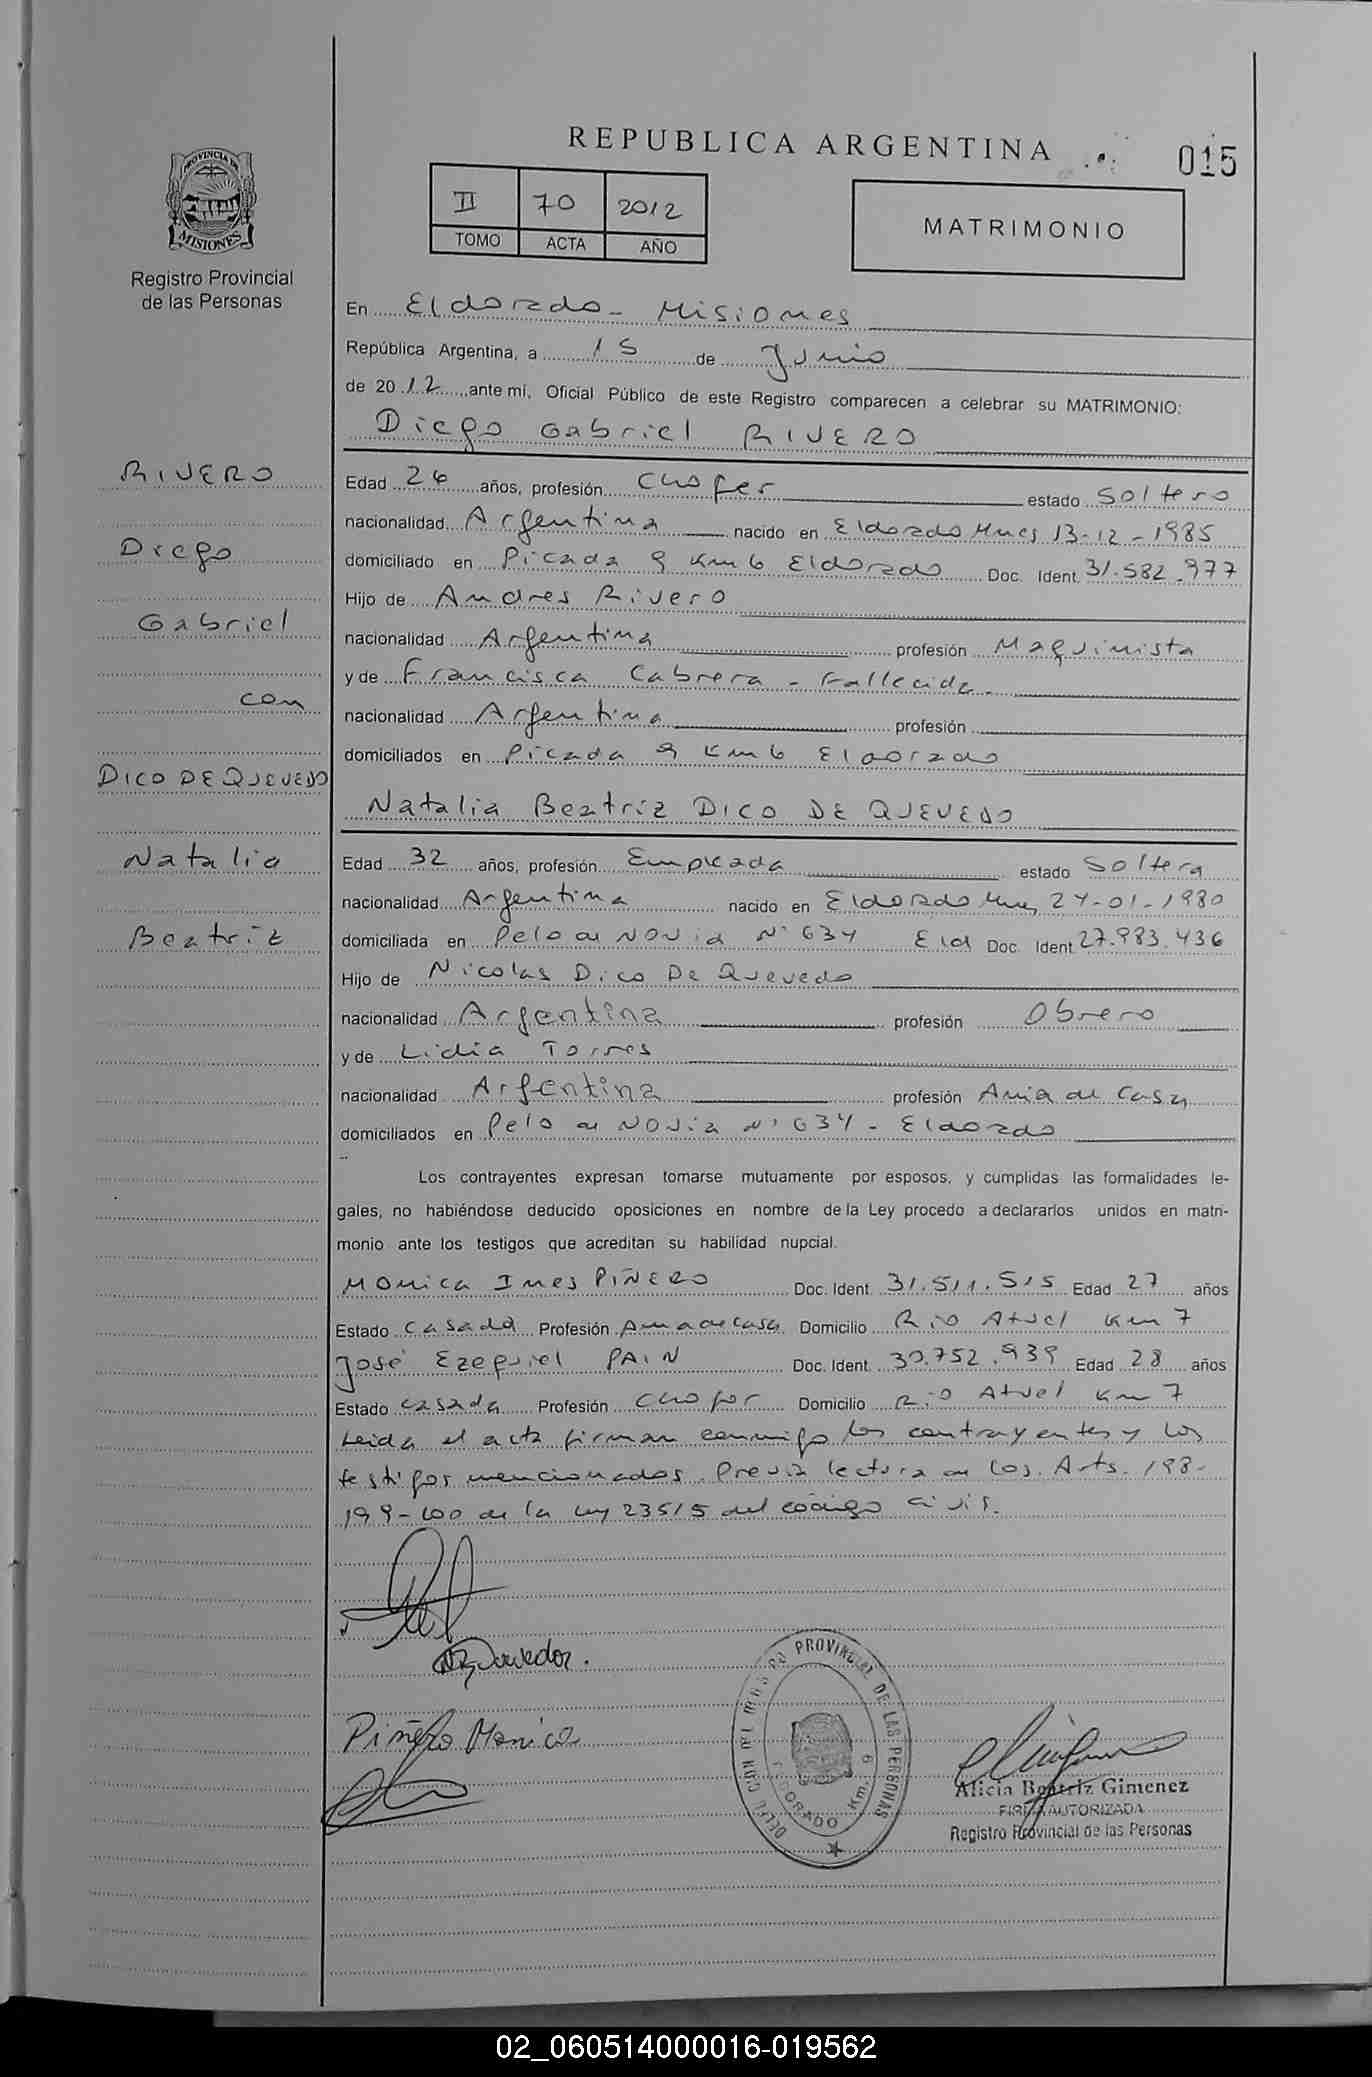 REPUBLICA ARGENTINA
015
II 70 2012
TOMO ACTA AÑO
MATRIMONIO
PROVINCIA DE
MISIONES
Registro Provincial
de las Personas
En Eldorado - Misiones
República Argentina, a 15 de Junio
de 2012 ante mí, Oficial Público de este Registro comparecen a celebrar su MATRIMONIO:
Diego Gabriel RIVERO
RIVERO
Diego
Gabriel
con
DICO DE QUEVEDO
Natalia
Beatriz
Edad 26 años, profesión Chofer estado Soltero
nacionalidad Argentina nacido en Eldorado Mnes 13-12-1985
domiciliado en Picada 9 Km 6 Eldorado Doc. Ident. 31.582.977
Hijo de Andres Rivero
nacionalidad Argentina profesión Maquinista
y de Francisca Cabrera - Fallecida -
nacionalidad Argentina profesión
domiciliados en Picada 9 Km 6 Eldorado
Natalia Beatriz DICO DE QUEVEDO
Edad 32 años, profesión Empleada estado Soltera
nacionalidad Argentina nacido en Eldorado Mnes 24-01-1980
domiciliada en Pelo de Novia N° 634 Eld Doc. Ident. 27.983.436
Hijo de Nicolas Dico De Quevedo
nacionalidad Argentina profesión Obrero
y de Lidia Torres
nacionalidad Argentina profesión Ama de Casa
domiciliados en Pelo de Novia N° 634 - Eldorado
Los contrayentes expresan tomarse mutuamente por esposos, y cumplidas las formalidades le-
gales, no habiéndose deducido oposiciones en nombre de la Ley procedo a declararlos unidos en matri-
monio ante los testigos que acreditan su habilidad nupcial.
Monica Ines PIÑERO Doc. Ident. 31.511.515 Edad 27 años
Estado Casada Profesión Ama de casa Domicilio Rio Atuel Km 7
José Ezequiel PAIN Doc. Ident. 30.752.939 Edad 28 años
Estado casada Profesión Chofer Domicilio Rio Atuel Km 7
Leida el acta firman conmigo los contrayentes y los
testigos mencionados. Previa lectura de los Arts. 198-
199-200 de la ley 23515 del código civil.
Piñero Monica
REGISTRO PROVINCIAL DE LAS PERSONAS
ELDORADO Km. 6
Alicia Beatriz Gimenez
FIRMA AUTORIZADA
Registro Provincial de las Personas
02_060514000016-019562